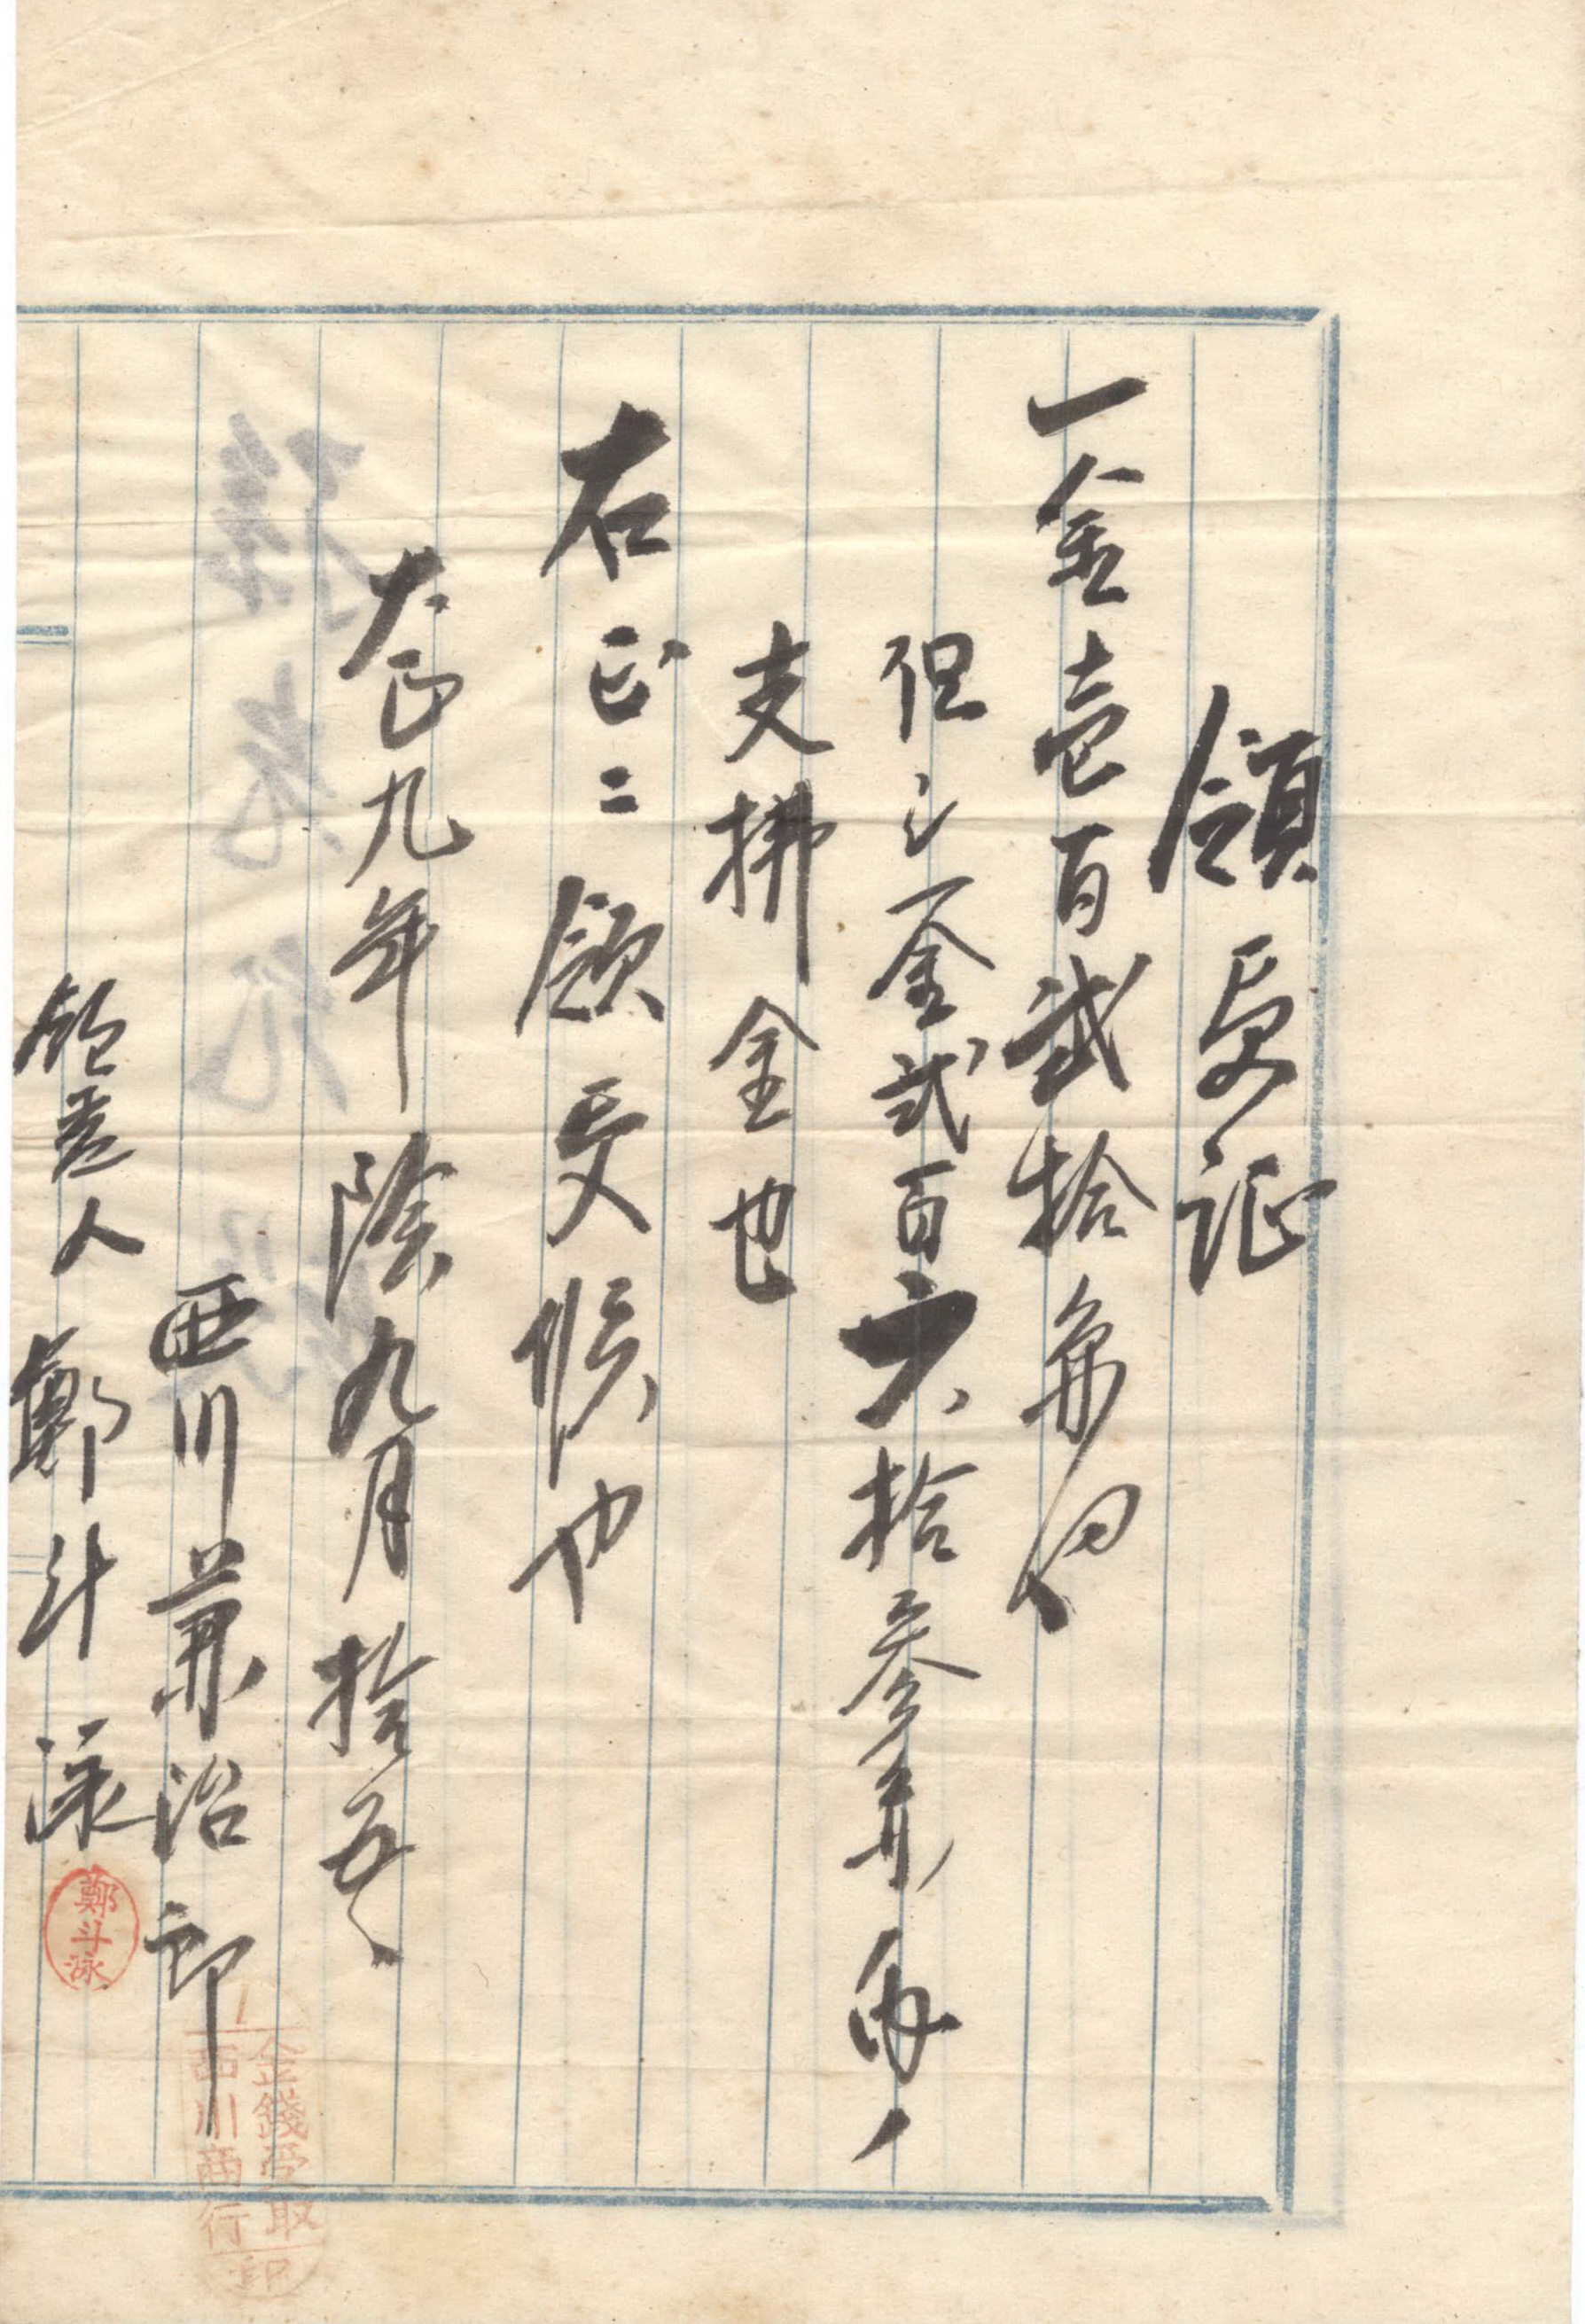 領受証
一金壱百貳拾弗也
但シ金貳百六拾参弗内ノ
支拂金也
右正ニ領受候也
大正九年陰九月拾五
西川兼治郎
領票人 鄭斗泳
鄭斗泳
金錢受取
西川商行
印